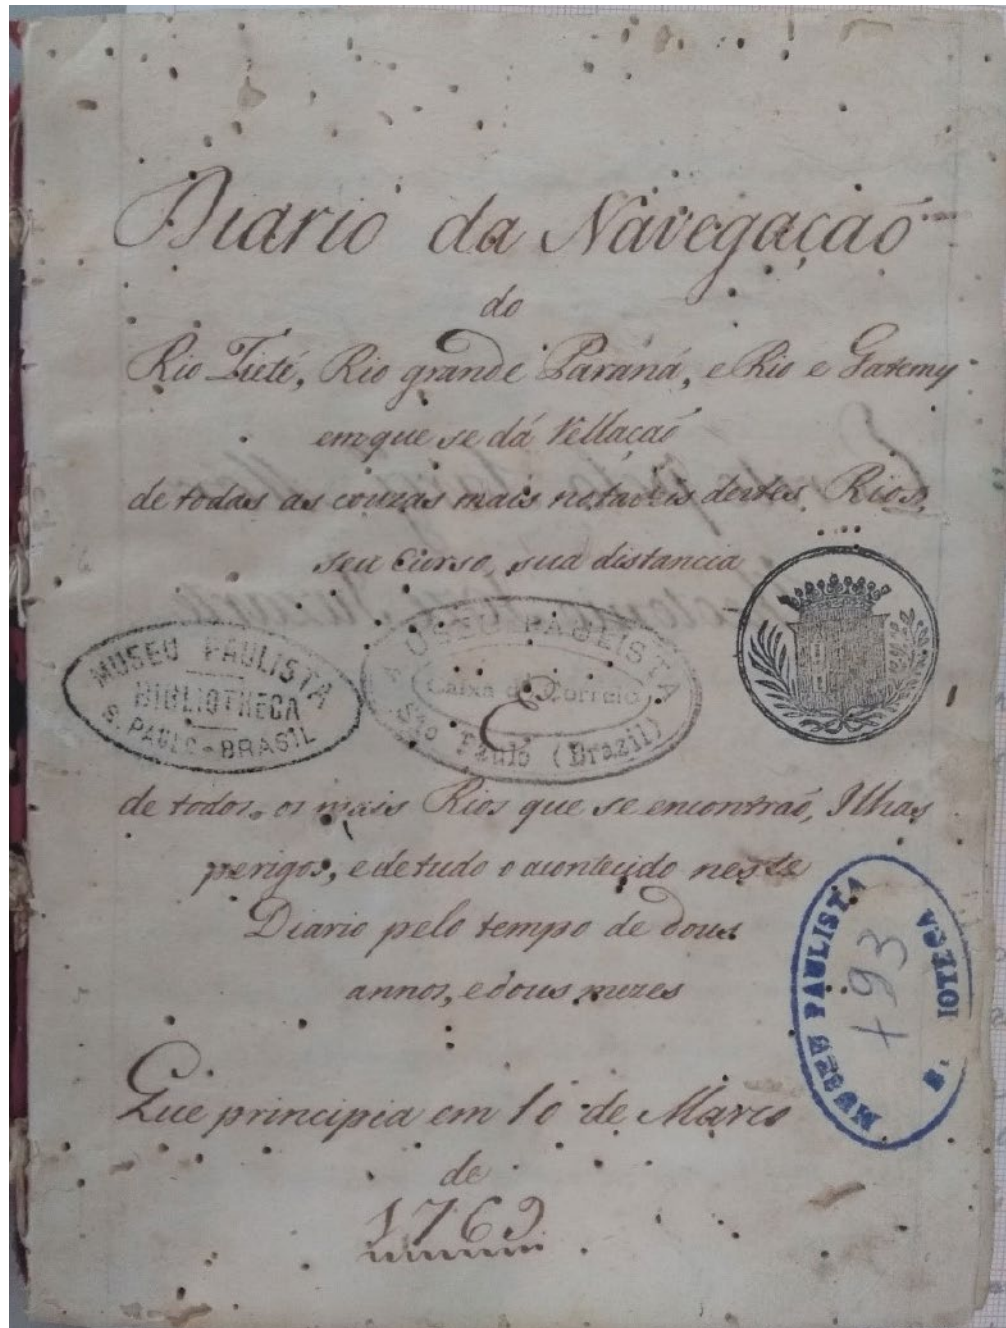 Diario da Navegação
do
Rio Tieté, Rio grande Paraná, e Rio e Gatemy
em que se dá Rellação
de todas as couzas mais notaveis destes Rios,
seu Curso, sua distancia
MUSEU PAULISTA
BIBLIOTHECA
S. PAULO - BRASIL
MUSEU PAULISTA
Caixa do Correio
São Paulo (Brazil)
E
de todos os mais Rios que se encontraõ, Ilhas
perigos, e de tudo o acontecido neste
Diario pelo tempo de dous
annos, e dous mezes
MUSEU PAULISTA
193
B. IOTECA
Que principia em 10 de Março
de
1769